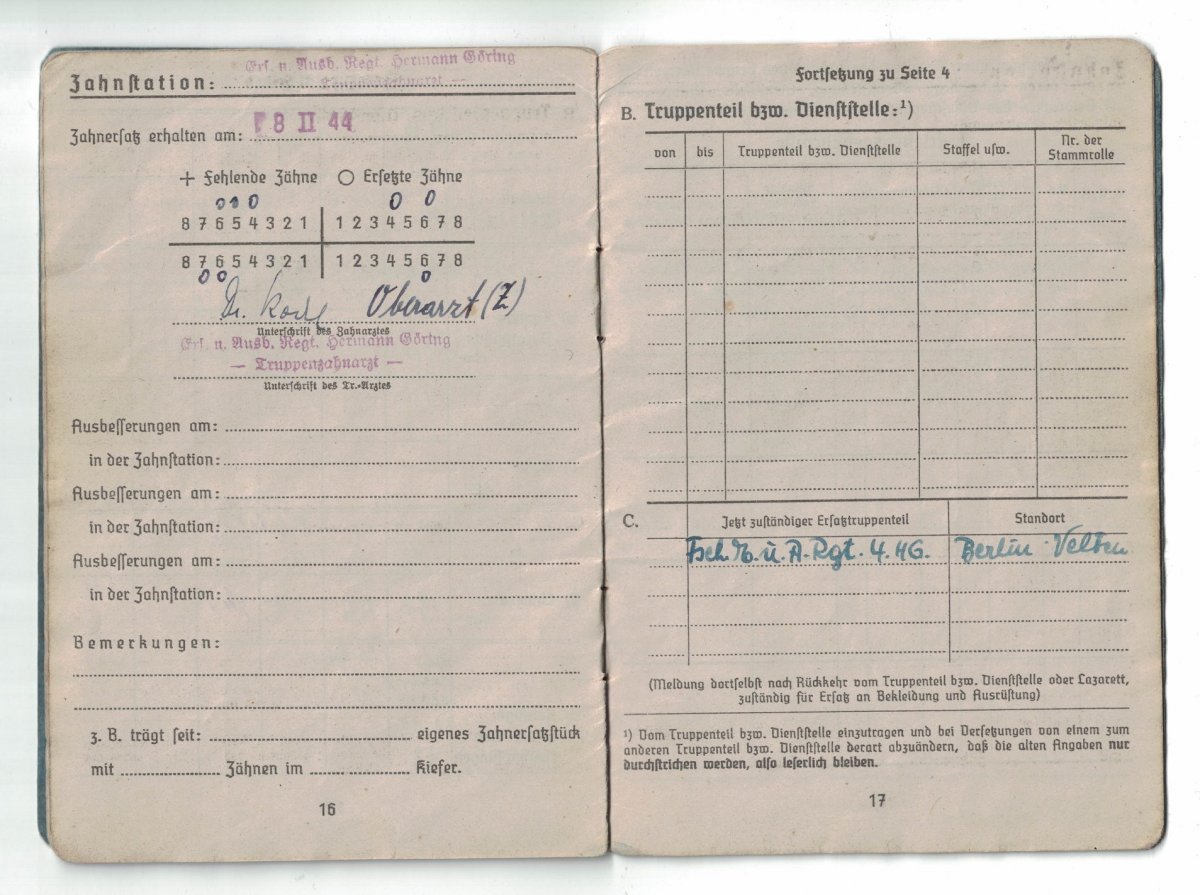 Zahnstation:
Ers. u. Ausb. Regt. Hermann Göring
Zahnersatz erhalten am:
8 II 44
+ Fehlende Zähne O Ersetzte Zähne
o o o o o
8 7 6 5 4 3 2 1 1 2 3 4 5 6 7 8
8 7 6 5 4 3 2 1 1 2 3 4 5 6 7 8
o o o
Dr. Oberarzt (Z)
Unterschrift des Zahnarztes
Ers. u. Ausb. Regt. Hermann Göring
— Truppenzahnarzt —
Unterschrift des Tr.-Arztes
Ausbesserungen am:
in der Zahnstation:
Ausbesserungen am:
in der Zahnstation:
Ausbesserungen am:
in der Zahnstation:
Bemerkungen:
z. B. trägt seit: eigenes Zahnersatzstück
mit Zähnen im Kiefer.
16
Fortsetzung zu Seite 4
B. Truppenteil bzw. Dienststelle:¹)
von bis Truppenteil bzw. Dienststelle Staffel usw. Nr. der Stammrolle
C. Jetzt zuständiger Ersatztruppenteil Standort
Fsch. E. u. A. Rgt. 4. HG. Berlin-Velten
(Meldung dortselbst nach Rückkehr vom Truppenteil bzw. Dienststelle oder Lazarett,
zuständig für Ersatz an Bekleidung und Ausrüstung)
¹) Vom Truppenteil bzw. Dienststelle einzutragen und bei Versetzungen von einem zum
anderen Truppenteil bzw. Dienststelle derart abzuändern, daß die alten Angaben nur
durchstrichen werden, also leserlich bleiben.
17